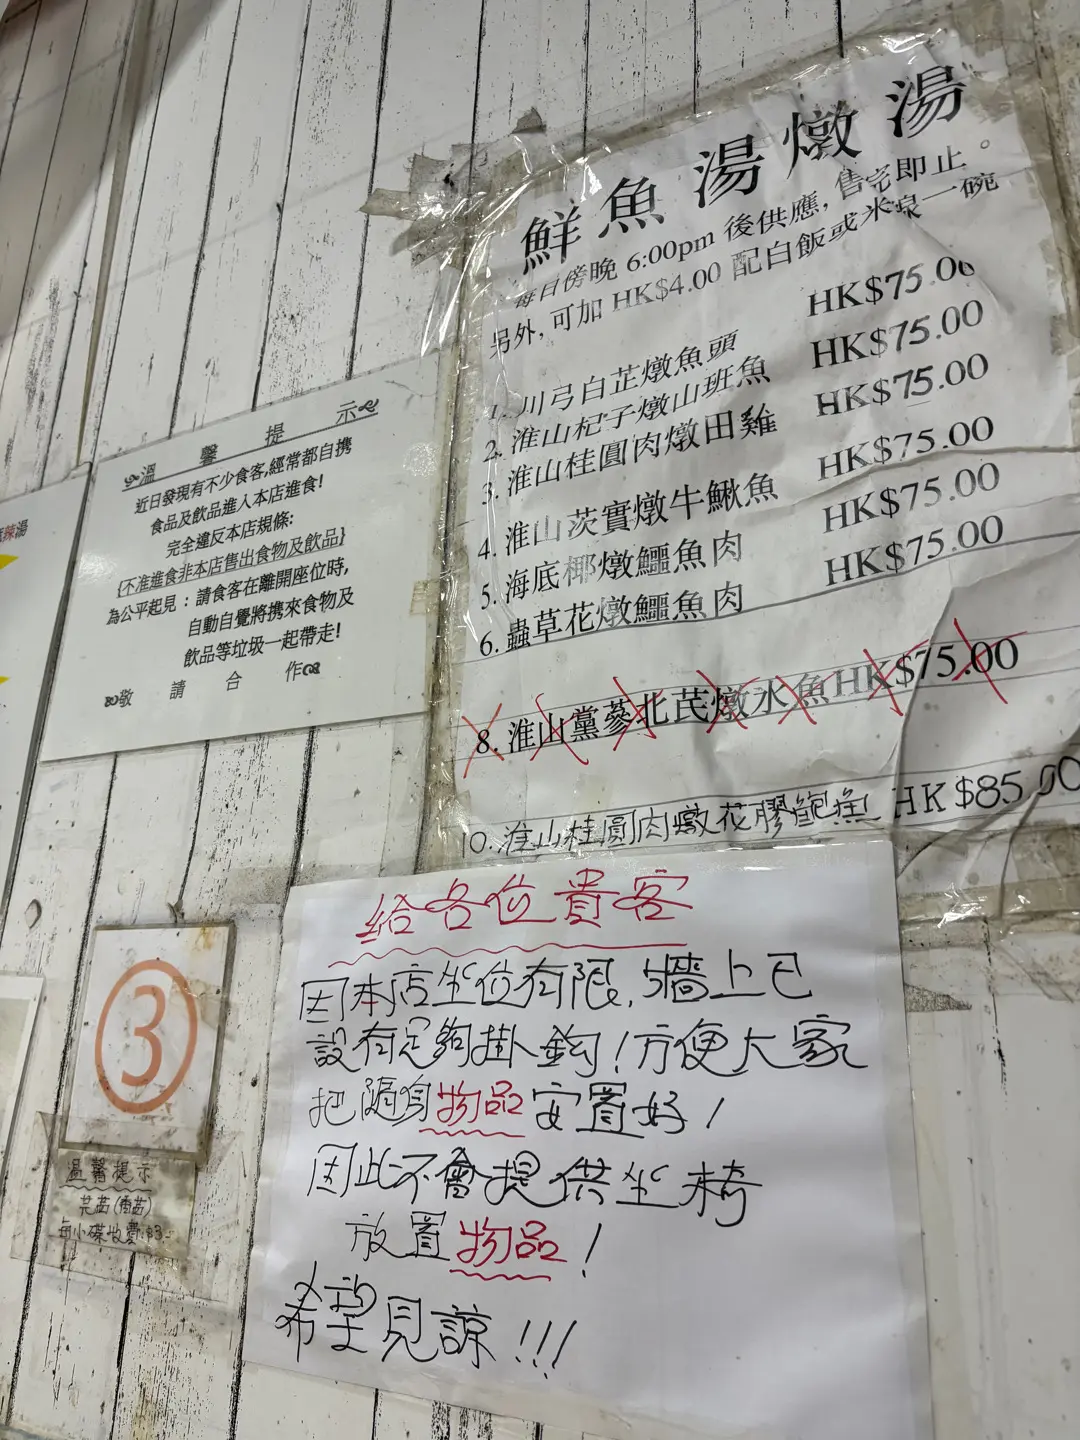 鮮魚湯燉湯
每日傍晚 6:00pm 後供應, 售完即止。
另外, 可加 HK$4.00 配白飯或米線一碗
1. 川弓白芷燉魚頭 HK$75.00
2. 淮山杞子燉山班魚 HK$75.00
3. 淮山桂圓肉燉田雞 HK$75.00
4. 淮山茨實燉牛鰍魚 HK$75.00
5. 海底椰燉鱷魚肉 HK$75.00
6. 蟲草花燉鱷魚肉 HK$75.00
8. 淮山黨蔘北芪燉水魚 HK$75.00
10. 淮山桂圓肉燉花膠鮑魚 HK$85.00
溫馨提示
近日發現有不少食客,經常都自携
食品及飲品進入本店進食!
完全違反本店規條:
{不准進食非本店售出食物及飲品}
為公平起見：請食客在離開座位時,
自動自覺將携來食物及
飲品等垃圾一起帶走!
敬請合作
辣湯
給各位貴客
因本店坐位有限, 牆上已
設有足夠掛鈎!方便大家
把隨身物品安置好!
因此不會提供坐椅
放置物品!
希望見諒!!!
3
溫馨提示
芫茜(香茜)
每小碟收費:$3-